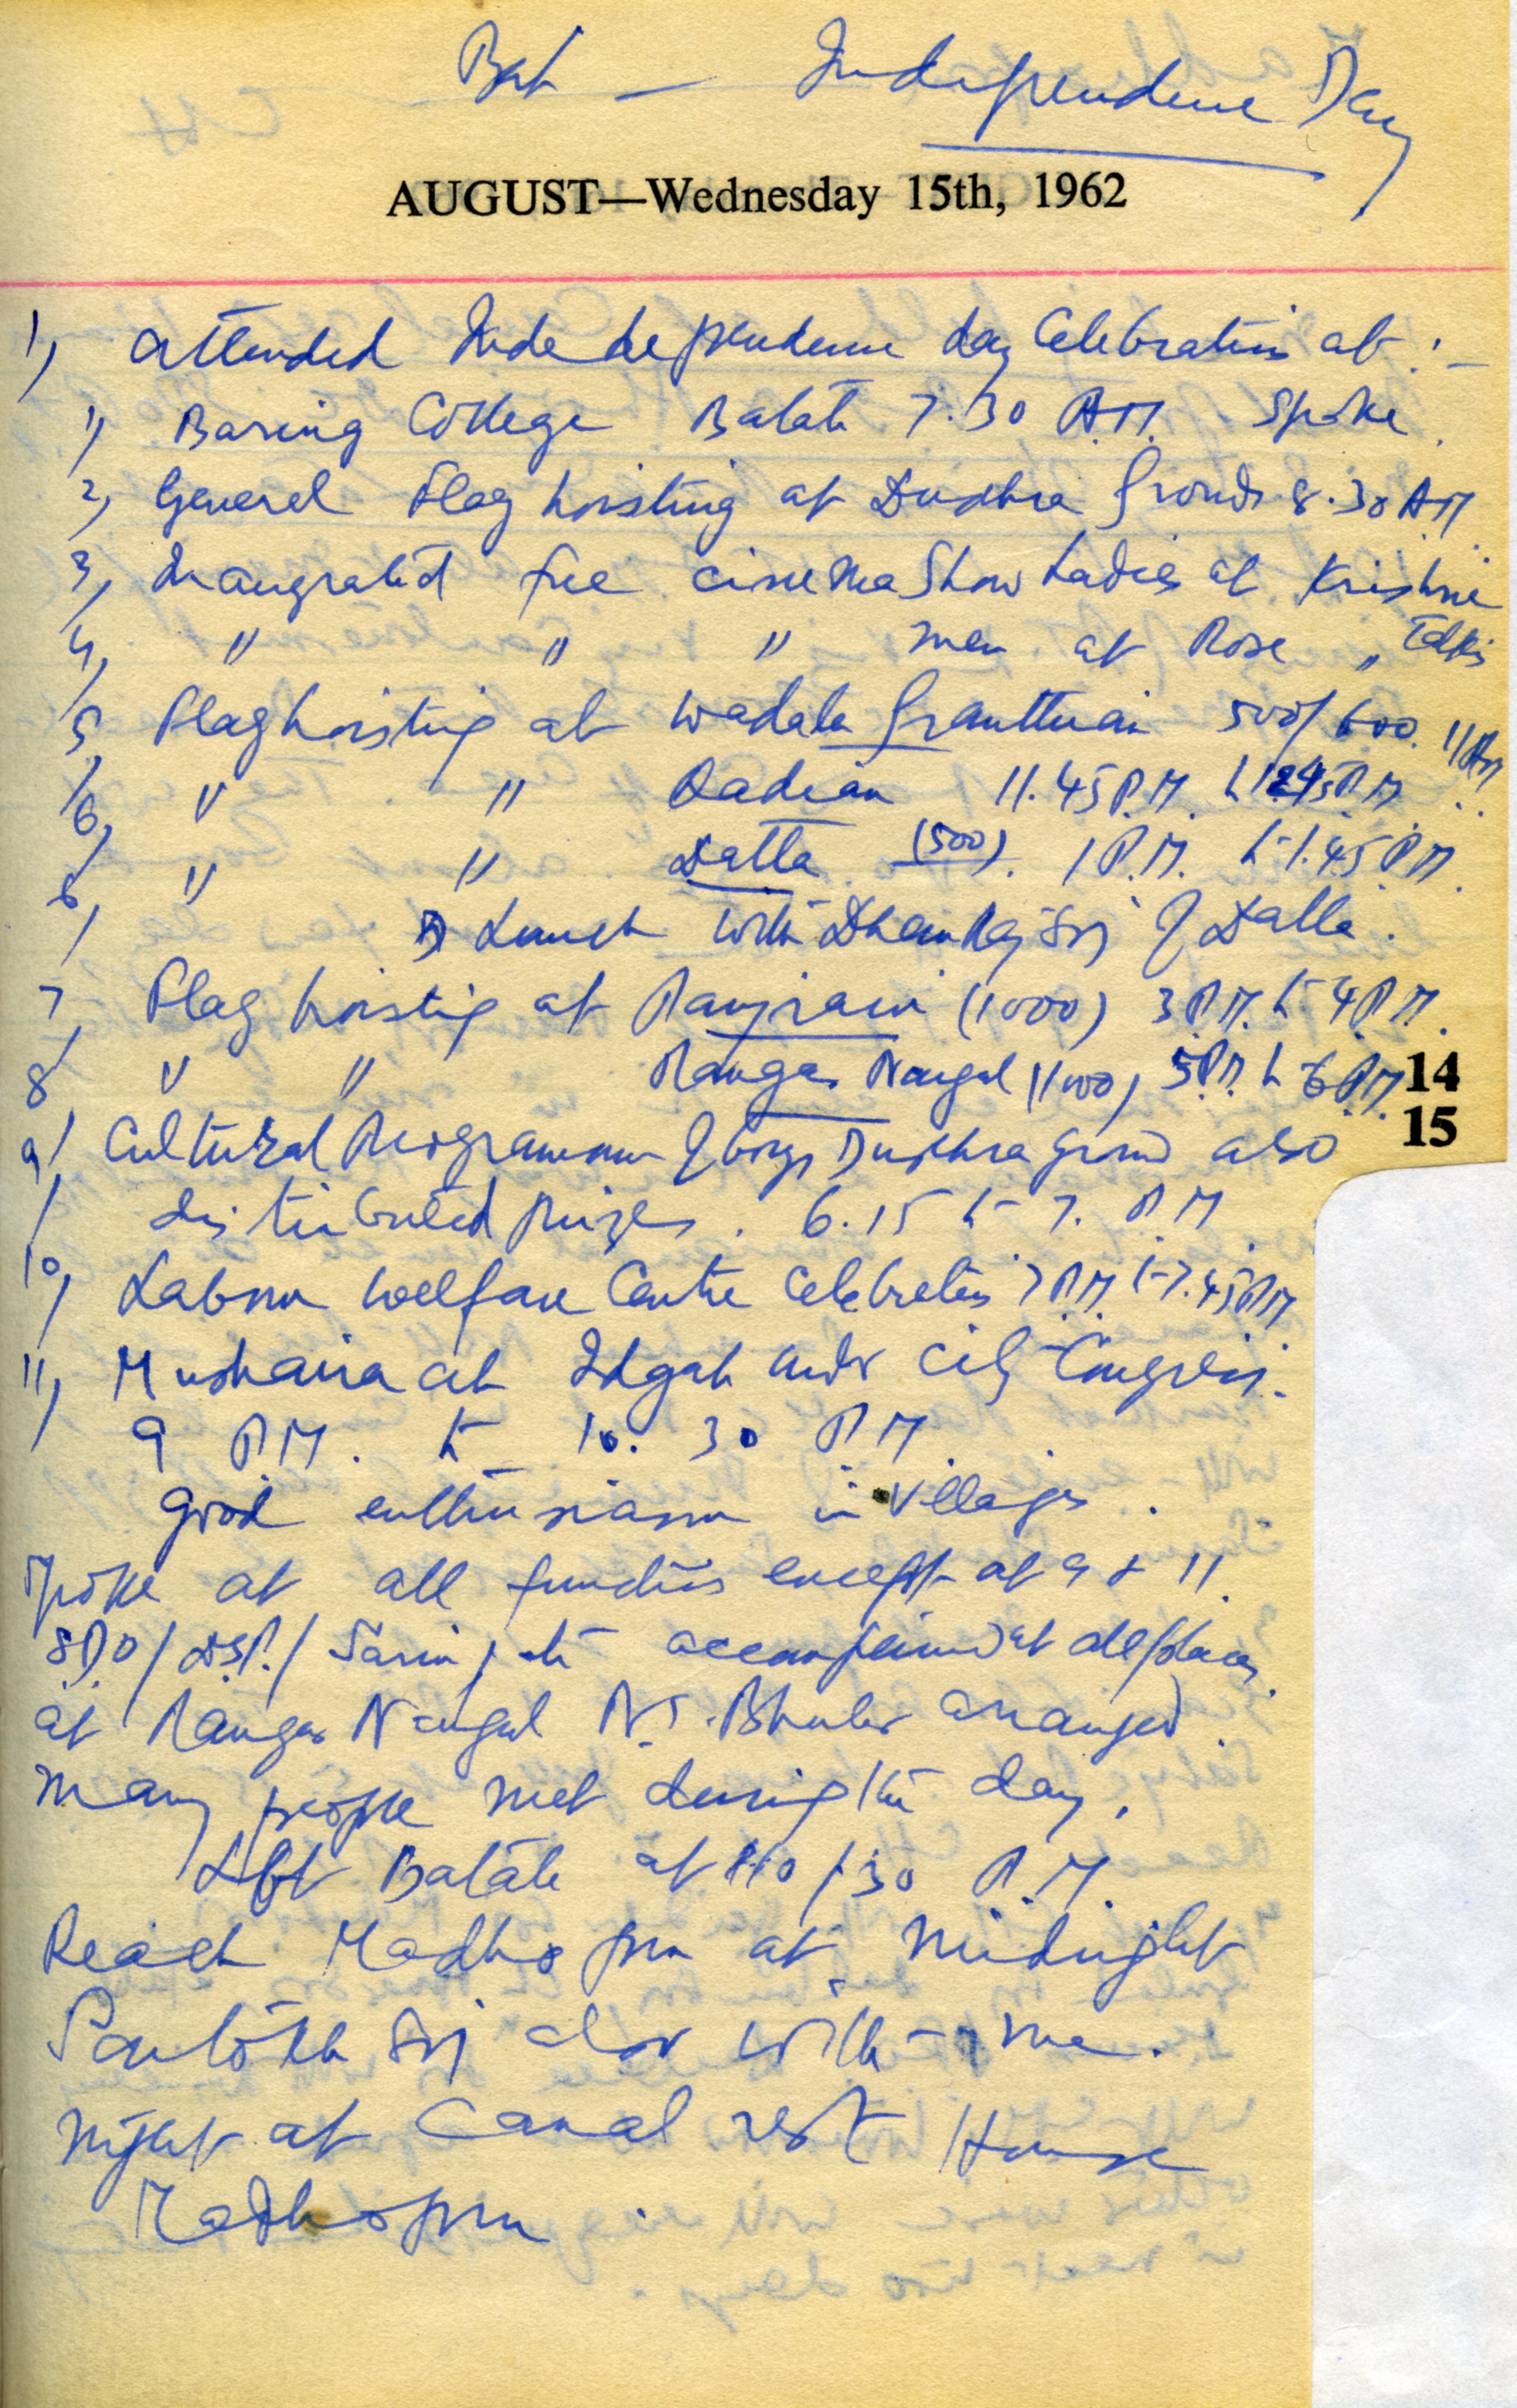 Bat — Independence Day
AUGUST—Wednesday 15th, 1962
1) attended Indedependence day Celebration at :-
1) Baring College Batala 7.30 A.M. Spoke.
2) General Flag hoisting at Dushra Ground 8.30 AM
3) Inaugrated free cinema Show Ladies at Krishna
4) " " " men at Rose " Talkis
5) Flag hoisting at Wadala Granthian 500/600. 11 AM
6) " " Qadian 11.45 P.M. to 1245 P.M.
6) " " Dalla (500). 1 P.M. to 1.45 P.M.
Lunch with Dhanraj Singh of Dalla.
7) Flag hoisting at (1000) 3 P.M. to 4 P.M.
8) " " Rangar Nangal (1000) 5 P.M. to 6 P.M.
14
15
9) Cultural Programme of boys Dushra ground also
distributed prizes. 6.15 to 7. P.M.
10) Labour Welfare Centre Celebration 7 P.M. to 7.45 P.M.
11) Mushaira at Idgah under City Congress.
9 P.M. to 10.30 P.M.
good enthusiasm in Villages.
Spoke at all functions except at 9 & 11.
SDO/DSP./Sarin, etc accompained at all places.
at Rangar Nangal arranged.
Many people met during the day.
Left Batala at 10/30 P.M.
Reach Madhopur at midnight
Santokh Singh also with me.
Night at Canal rest House
Madhopur.